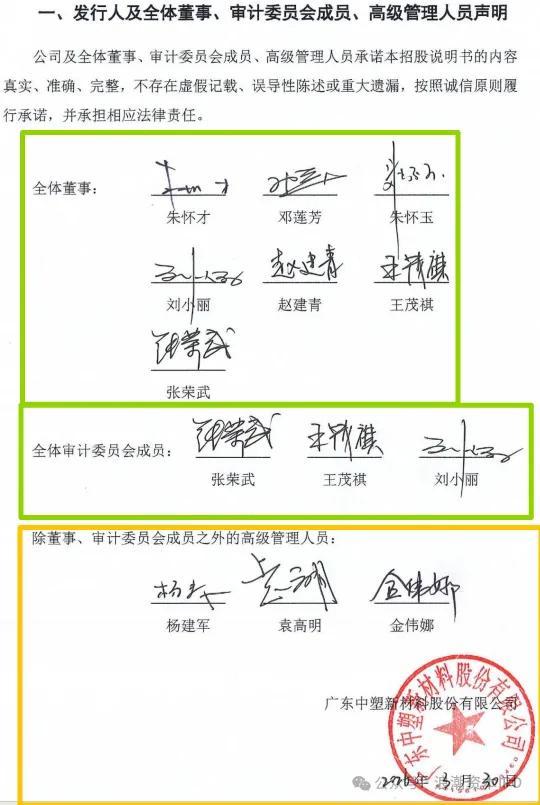 一、发行人及全体董事、审计委员会成员、高级管理人员声明
公司及全体董事、审计委员会成员、高级管理人员承诺本招股说明书的内容
真实、准确、完整，不存在虚假记载、误导性陈述或重大遗漏，按照诚信原则履
行承诺，并承担相应法律责任。
全体董事：
朱怀才 邓莲芳 朱怀玉
赵建青 王茂祺
刘小丽 赵建青 王茂祺
张荣武
张荣武
全体审计委员会成员： 张荣武 王茂祺
张荣武 王茂祺 刘小丽
除董事、审计委员会成员之外的高级管理人员：
金伟娜
杨建军 袁高明 金伟娜
广东中塑新材料股份有限公司
广东中塑新材料股份有限公司
2026年3月30日